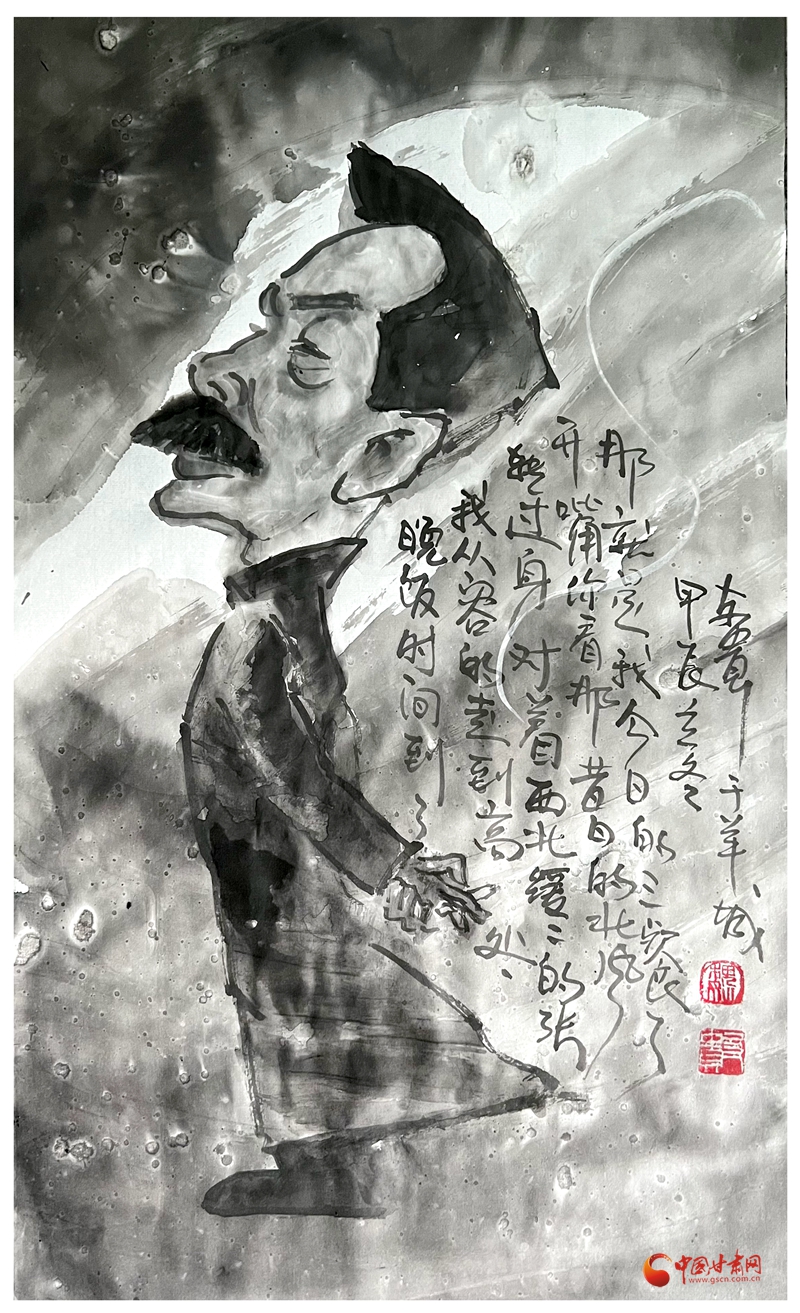 晚饭时间到了
我从容的走到高处、
转过身 对着西北缓〻的张
开嘴你看那昔日的北风
那就是我今日的三餐了
甲辰之冬
于羊城
中国甘肃网
www.gscn.com.cn